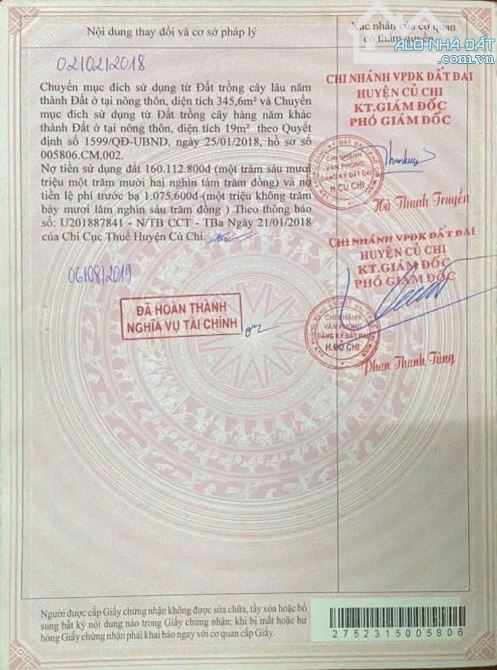 Nội dung thay đổi và cơ sở pháp lý
Xác nhận của cơ quan
có thẩm quyền
ALO NHÀ ĐẤT
.com.vn
02/02/2018
Chuyển mục đích sử dụng từ Đất trồng cây lâu năm
thành Đất ở tại nông thôn, diện tích 345,6m² và Chuyển
mục đích sử dụng từ Đất trồng cây hàng năm khác
thành Đất ở tại nông thôn, diện tích 19m² theo Quyết
định số 1599/QĐ-UBND, ngày 25/01/2018, hồ sơ số
005806.CM.002.
Nợ tiền sử dụng đất 160.112.800đ (một trăm sáu mươi
triệu một trăm mười hai nghìn tám trăm đồng) và nợ
tiền lệ phí trước bạ 1.075.600đ (một triệu không trăm
bảy mươi lăm nghìn sáu trăm đồng ) Theo thông báo
số: U201887841 - N/TB CCT - TBa Ngày 21/01/2018
của Chi Cục Thuế Huyện Củ Chi.
CHI NHÁNH VPĐK ĐẤT ĐAI
HUYỆN CỦ CHI
KT.GIÁM ĐỐC
PHÓ GIÁM ĐỐC
CHI NHÁNH
VĂN PHÒNG
ĐĂNG KÝ ĐẤT ĐAI
H.CỦ CHI
Hà Thanh Truyền
06/08/2019
ĐÃ HOÀN THÀNH
NGHĨA VỤ TÀI CHÍNH
CHI NHÁNH VPĐK ĐẤT ĐAI
HUYỆN CỦ CHI
KT.GIÁM ĐỐC
PHÓ GIÁM ĐỐC
CHI NHÁNH
VĂN PHÒNG
ĐĂNG KÝ ĐẤT ĐAI
H.CỦ CHI
Phan Thanh Tùng
Người được cấp Giấy chứng nhận không được sửa chữa, tẩy xóa hoặc bổ
sung bất kỳ nội dung nào trong Giấy chứng nhận; khi bị mất hoặc hư
hỏng Giấy chứng nhận phải khai báo ngay với cơ quan cấp Giấy.
2752315005806